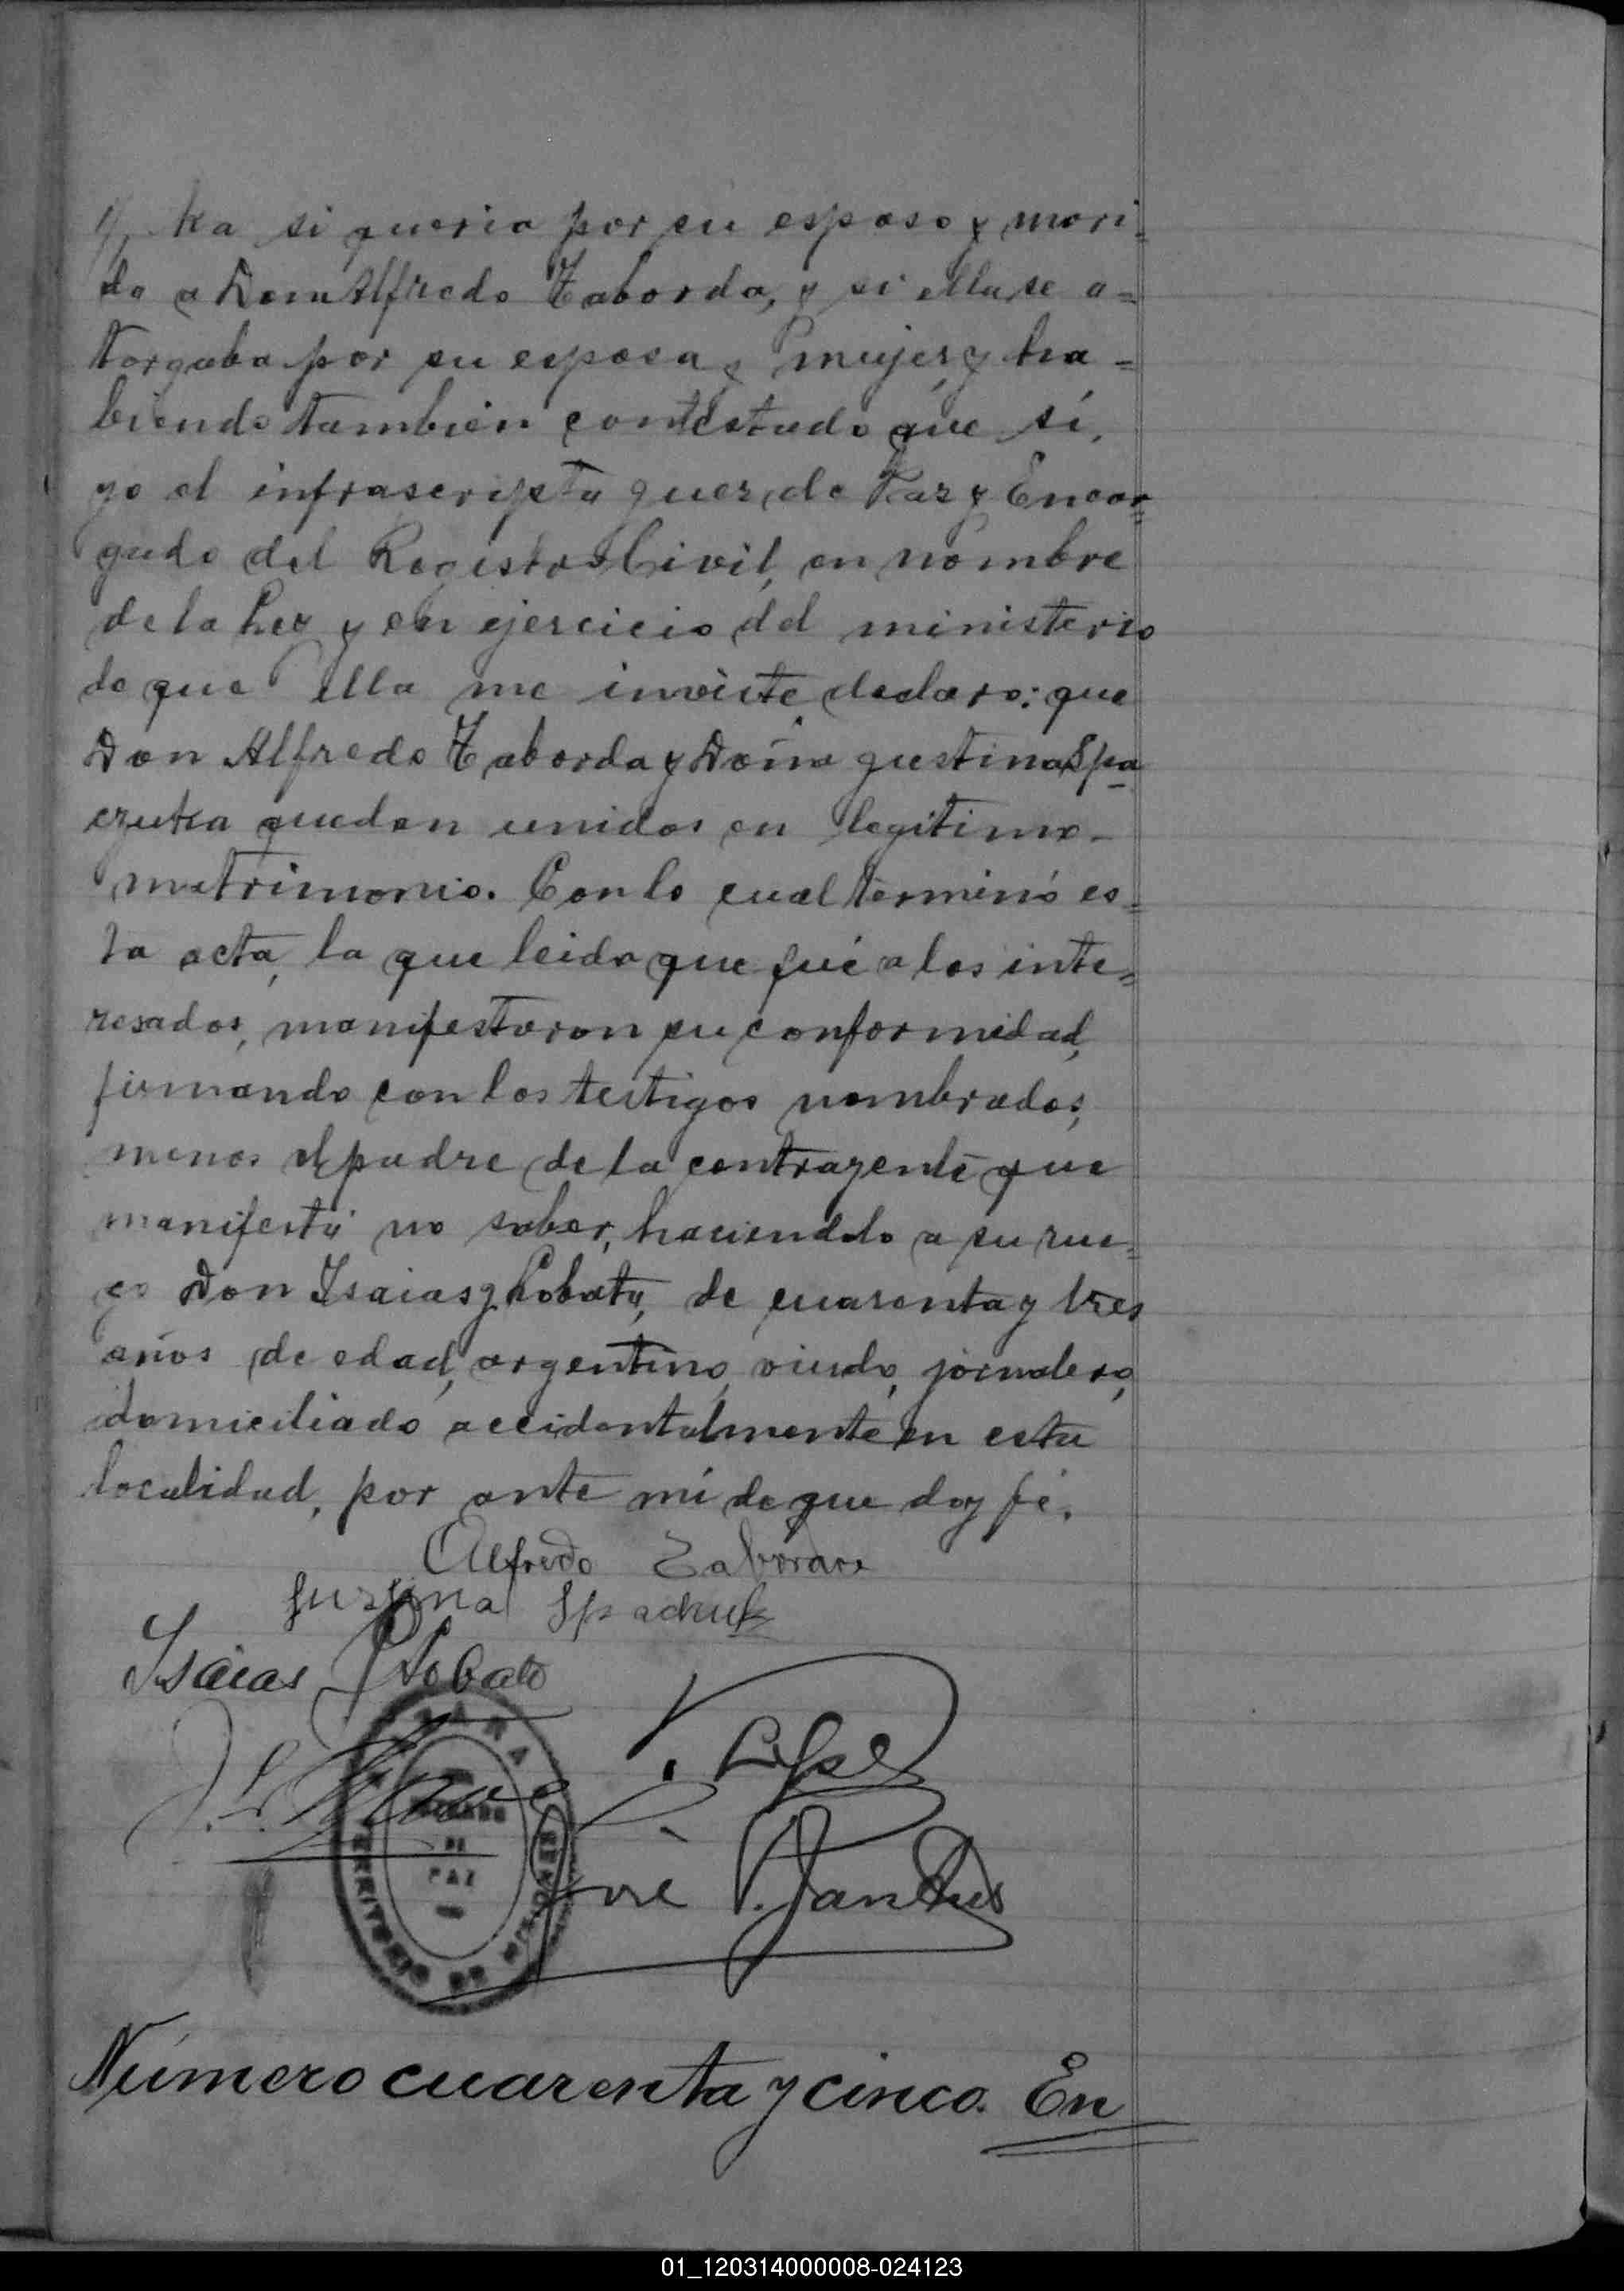 // ka si queria por su esposo y mari=
do a Don Alfredo Taborda, y si ella se o=
torgaba por su esposa y mujer, y ha=
biendo también contestado que sí,
yo el infrascripto Juez de Paz y Encar=
gado del Registro Civil, en nombre
de la Ley y en ejercicio del ministerio
de que ella me inviste declaro: que
Don Alfredo Taborda y Doña Justina Spa
czuka quedan unidos en legítimo
matrimonio. Con lo cual terminó es=
ta acta, la que leida que fué a los inte=
resados, manifestaron su conformidad,
firmando con los testigos nombrados,
menos el padre de la contrayente que
manifestó no saber, haciendolo a su rue=
go Don Isaias J Lobato, de cuarenta y tres
años de edad, argentino, viudo, jornalero,
domiciliado accidentalmente en esta
localidad, por ante mí de que doy fé.
Alfredo Taborda
Isaias J Lobato
V. López
José
JUZGADO
DE
PAZ
TERRITORIO DE MISIONES
Número cuarenta y cinco. En
01_120314000008-024123